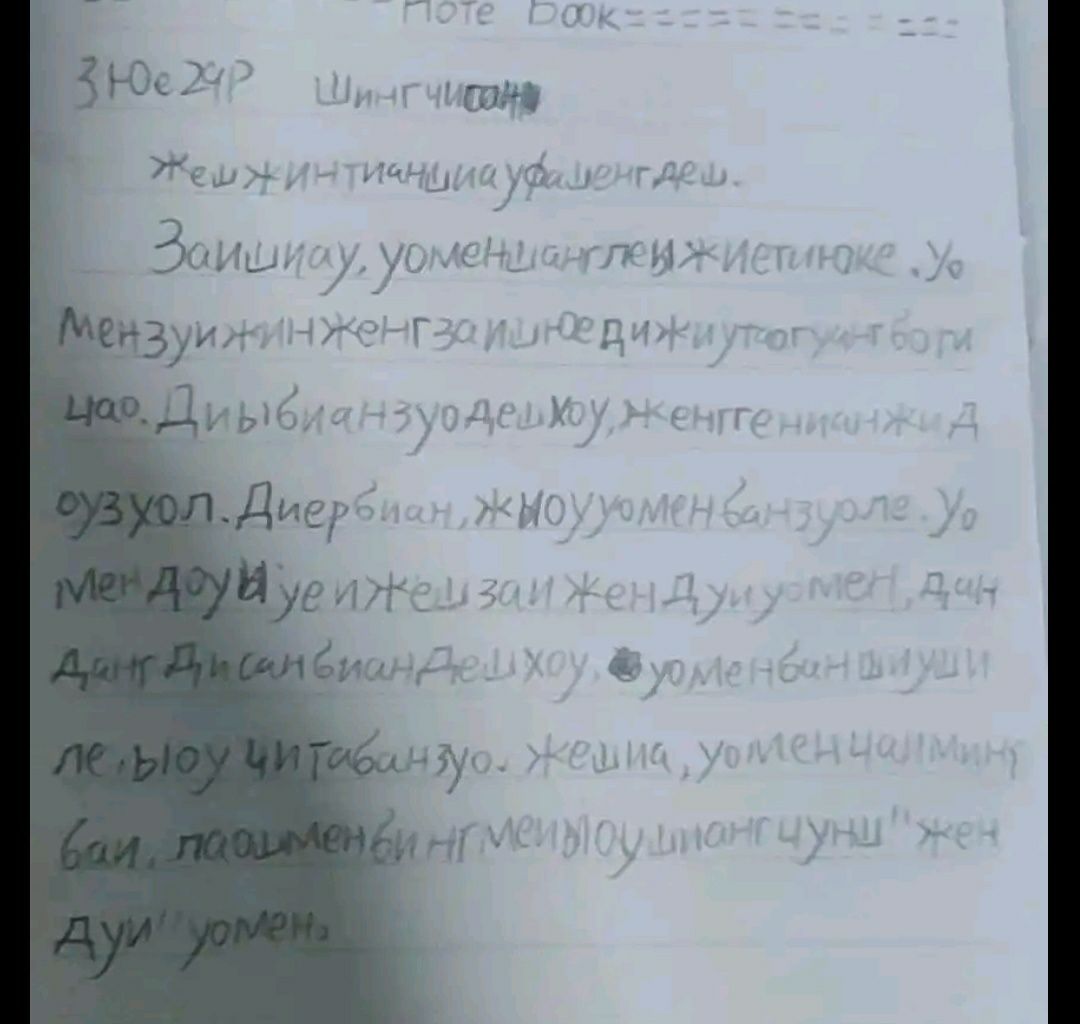 Note Book
3Юе24Р Шингчисан
Жешжинтианшиауфашенгдеш.
Заишиау, уоменшанглеыжиетиюке. Уо
Мензуижинженгзаишюедижиутаогуангботи
цао. Диыбианзуодешхоу, женггенианжид
оузуол. Диербиан, жыоууоменбанзуоле. Уо
Мендоуыуеижешзаижендуиуомен, дан
дангдисанбиандешхоу, уоменбаншиуши
ле, ыоучитабанзуо. Жешиа, уоменцаиминг
баи, лаошменбингмеиыоушиангцунш "жен
дуи" уомен.